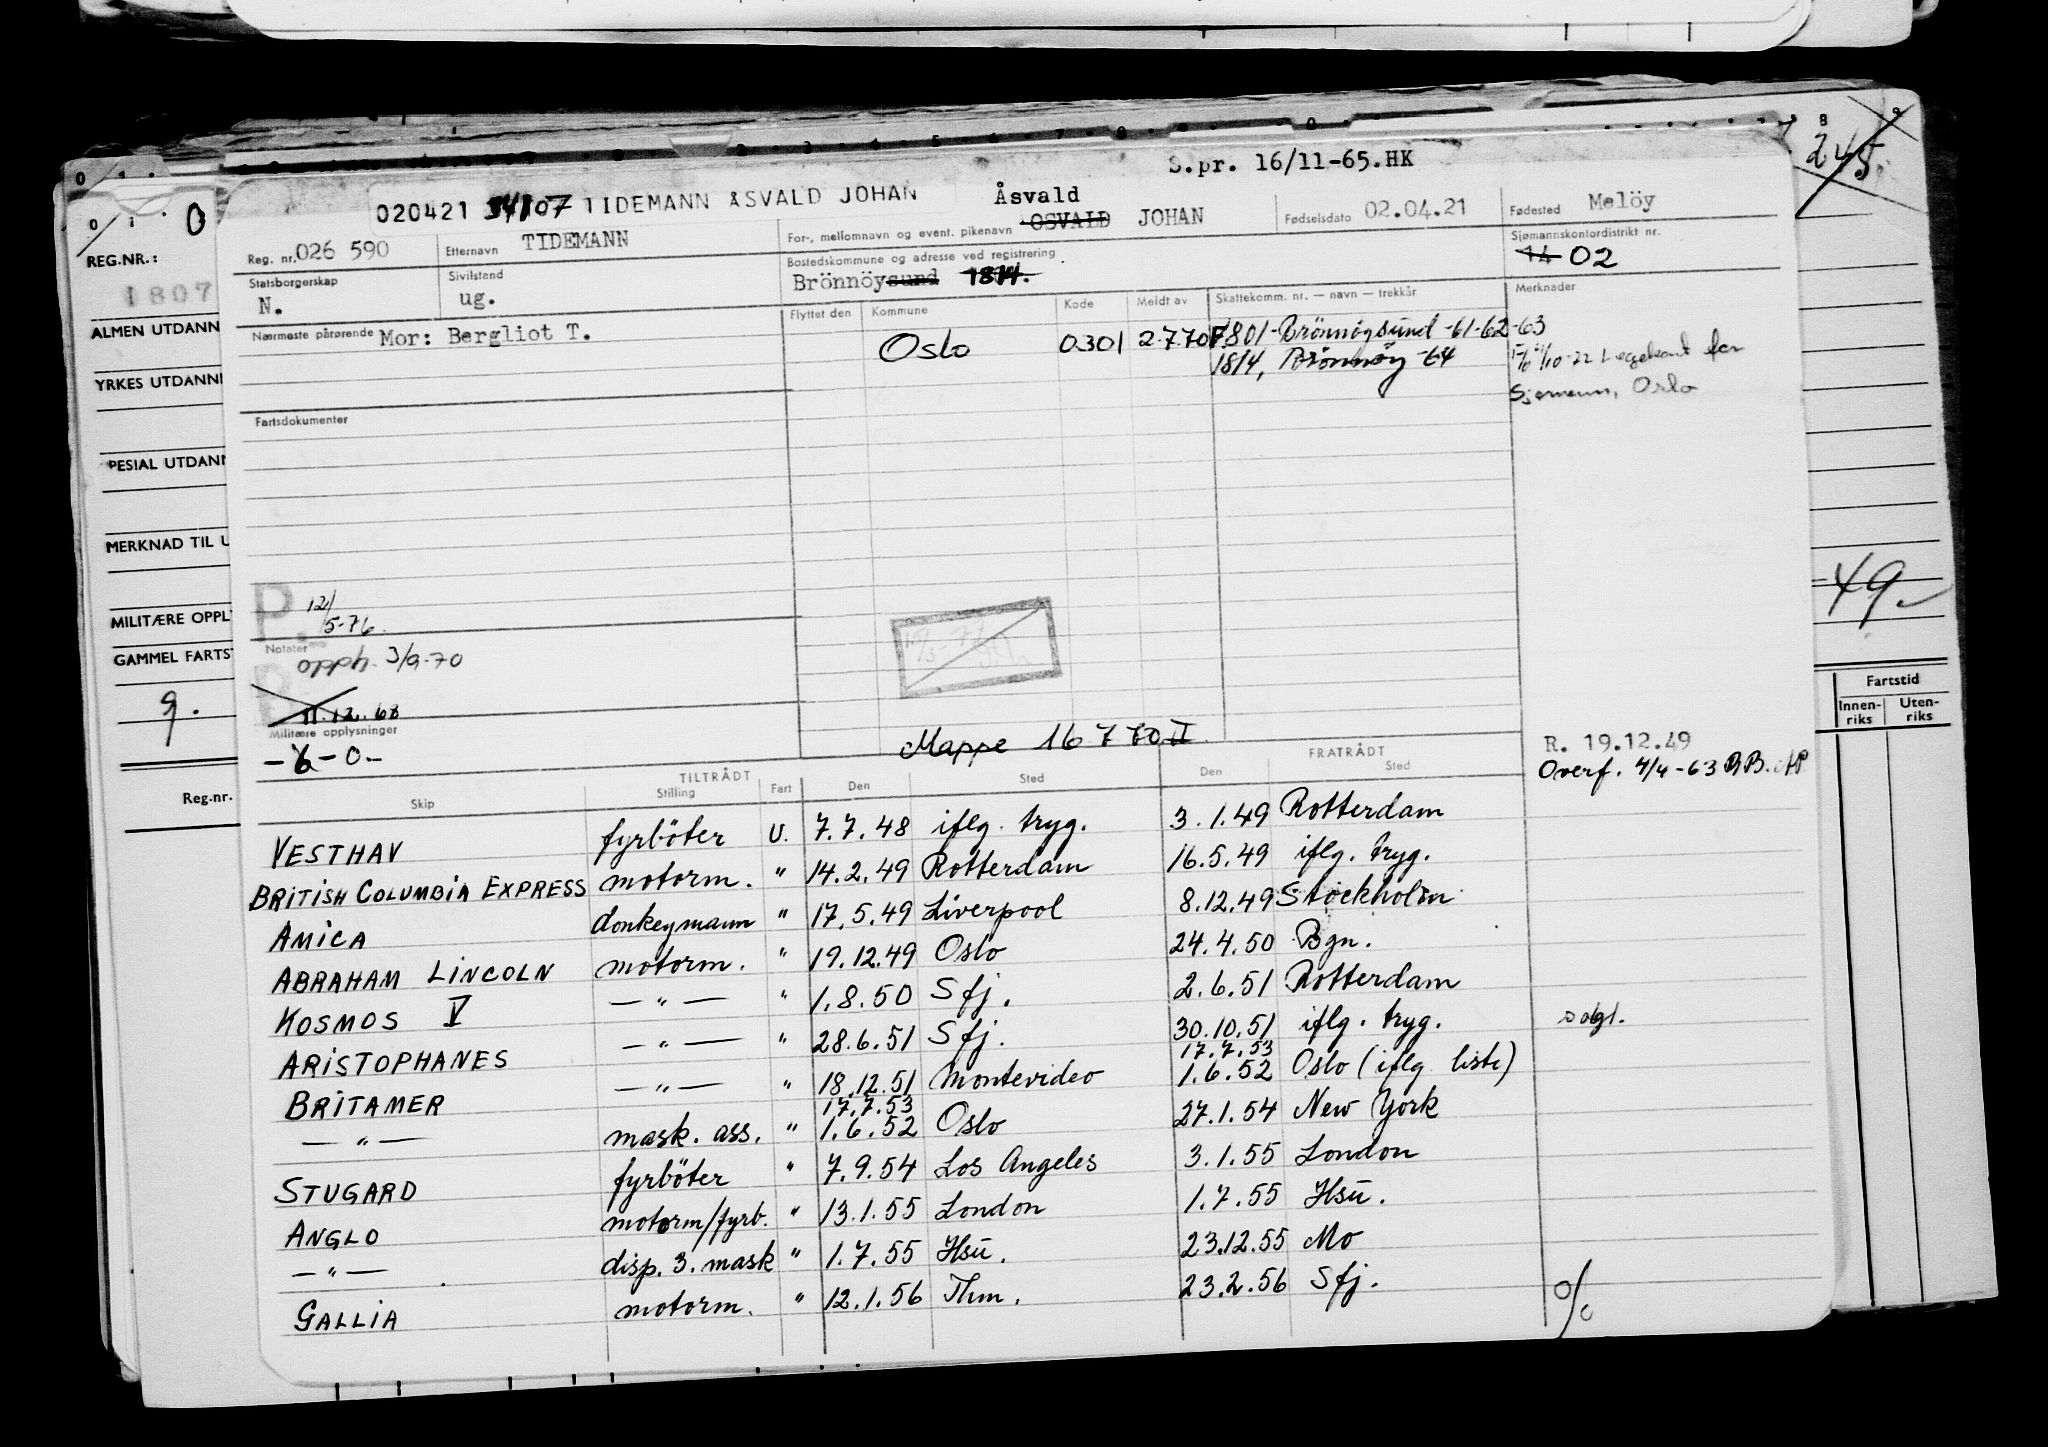 S.pr. 16/11-65.HK
245
020421 34107 TIDEMANN ÅSVALD JOHAN
Reg. nr. 026 590 Etternavn TIDEMANN For-, mellomnavn og event. pikenavn Åsvald OSVALD JOHAN Fødselsdato 02.04.21 Fødested Melöy
Statsborgerskap N. Sivilstand ug. Bostedskommune og adresse ved registrering Brönnöysund 1814. Sjømannskontordistrikt nr. 14 02
Nærmeste pårørende Mor: Bergliot T.
Flyttet den Kommune Kode Meldt av Skattekomm. nr. — navn — trekkår Merknader
Oslo 0301 2.7.70F 1801-Brönnöysund -61-62-63
1814, Brönnöy -64
Sjømenn, Oslo
Fartsdokumenter
REG.NR.:
1807
ALMEN UTDANN
YRKES UTDANN
PESIAL UTDANN
MERKNAD TIL U
MILITÆRE OPPL
GAMMEL FARTS
9.
Reg.nr.
49.-
Fartstid
Innen-riks Uten-riks
P 12/5-76.
Notater
oppl. 3/9-70
11.12.68
Militære opplysninger
-6-0.-
Mappe 16 770 II
R. 19.12.49
Overf. 4/4-63
TILTRÅDT FRATRÅDT
Skip Stilling Fart Den Sted Den Sted
VESTHAV fyrböter U. 7.7.48 iflg. tryg. 3.1.49 Rotterdam
BRITISH COLUMBIA EXPRESS motorm. " 14.2.49 Rotterdam 16.5.49 iflg. tryg.
AMICA donkeymann " 17.5.49 Liverpool 8.12.49 Stockholm
ABRAHAM LINCOLN motorm. " 19.12.49 Oslo 24.4.50 Bgn.
KOSMOS V — " — " 1.8.50 Sfj. 2.6.51 Rotterdam
ARISTOPHANES — " — " 28.6.51 Sfj. 30.10.51 iflg. tryg. sagl.
BRITAMER — " — " 18.12.51 Montevideo 17.7.53 1.6.52 Oslo (iflg liste)
— " — mask. ass. " 17.7.53 1.6.52 Oslo 27.1.54 New York
STUGARD fyrböter " 7.9.54 Los Angeles 3.1.55 London
ANGLO motorm/fyrb. " 13.1.55 London 1.7.55 Hsu.
— " — disp. 3. mask " 1.7.55 Hsu. 23.12.55 Mo
GALLIA motorm. " 12.1.56 Thm. 23.2.56 Sfj.
%